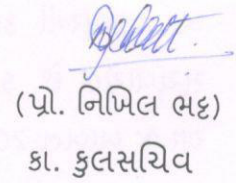 (પ્રો. નિખિલ ભટ્ટ)
કા. કુલસચિવ